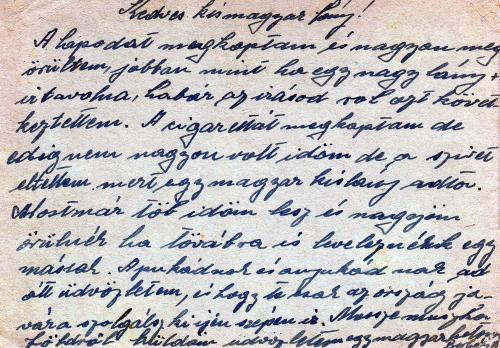 Kedves kismagyar lány!
A lapodat megkaptam, és nagyon meg
örültem, jobban mint ha egy nagy lány
irta volna, habár az irásod rol azt követ
keztettem. A cigarettát megkaptam de
edig nem nagyon volt idöm de a szivét
eltettem mert egy magyar kislány adta.
Mostmár töb idöm lesz és nagyon
örülnék ha továbra is leveleznénk egy
mással. Apukádnak és anyukád nak ad
át üdvözletem, és hogy te is az ország ja-
vára szolgálsz ki ijen szépen ir. Messze muszka
földröl küldöm üdvözletem egy magyar